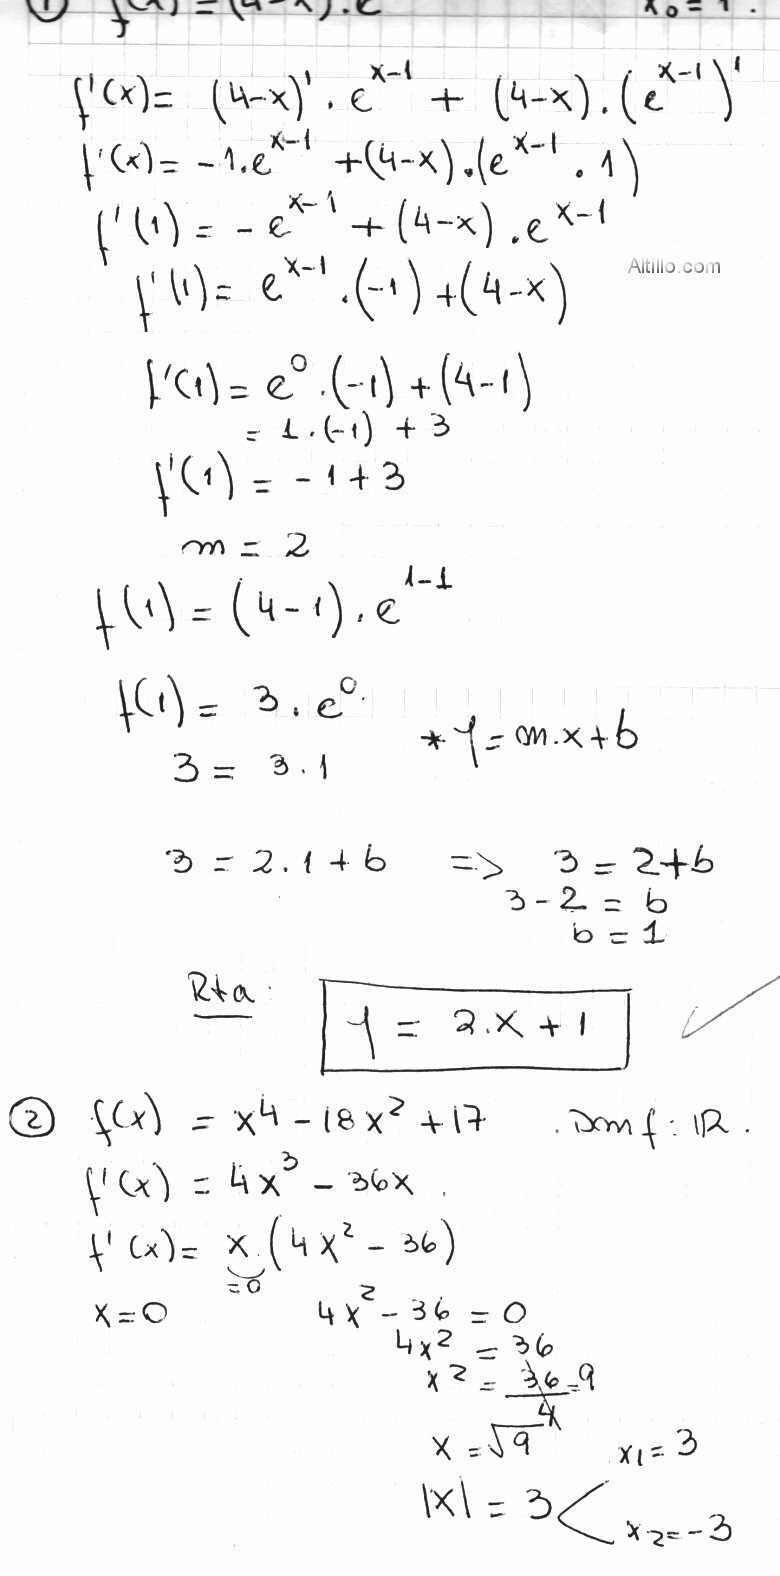 ① f(x) = (4-x) . e x₀ = 1 .
f'(x) = (4-x)' . e^(x-1) + (4-x) . (e^(x-1))'
f'(x) = -1 . e^(x-1) + (4-x) . (e^(x-1) . 1)
f'(1) = - e^(x-1) + (4-x) . e^(x-1)
Altillo.com
f'(1) = e^(x-1) . (-1) + (4-x)
f'(1) = e^0 . (-1) + (4-1)
= 1 . (-1) + 3
f'(1) = -1 + 3
m = 2
f(1) = (4-1) . e^(1-1)
f(1) = 3 . e^0
* y = m.x + b
3 = 3 . 1
3 = 2 . 1 + b => 3 = 2 + b
3 - 2 = b
b = 1
Rta :
y = 2.x + 1
② f(x) = x^4 - 18x^2 + 17 . Domf : IR .
f'(x) = 4x^3 - 36x .
f'(x) = x . (4x^2 - 36)
= 0
x = 0 4x^2 - 36 = 0
4x^2 = 36
x^2 = 36/4 = 9
x = √9 x1 = 3
|x| = 3 <
x2 = -3